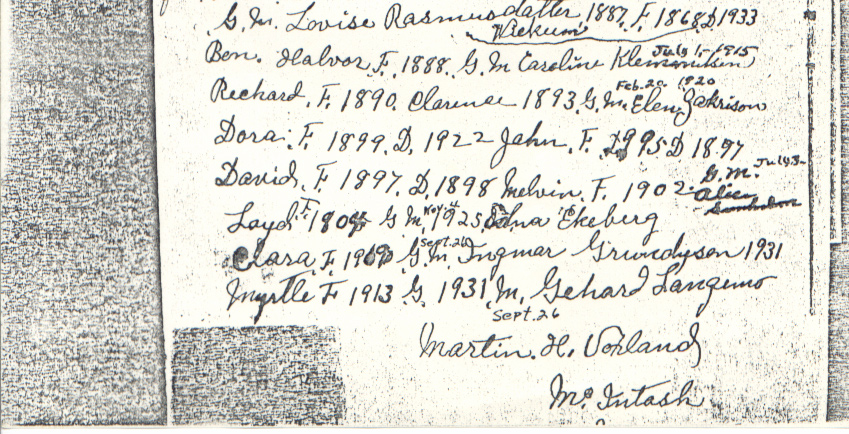 G. M. Lovise Rasmusdatter 1887, F. 1868 D. 1933
Vickum
Ben. Halvor F. 1888. G. M Caroline July 1, 1915
Richard. F. 1890. Clarence 1893 G. M. Feb. 20. 1920 Elen Zakrison
Dora. F. 1899. D. 1922 John. F. D 1897
David. F. 1897. D. 1898 Melvin. F. 1902. G. M. July 3 Alice
Loyd F. G. M. Nov 4 1925 Edna Ekeberg
Clara F. G. M. Sept. 26 Ingmar Grundyson 1931
Myrtle F 1913 G. 1931 M. Gehard Langemo
Sept. 26
Martin. H. Voxland
Mc Intash